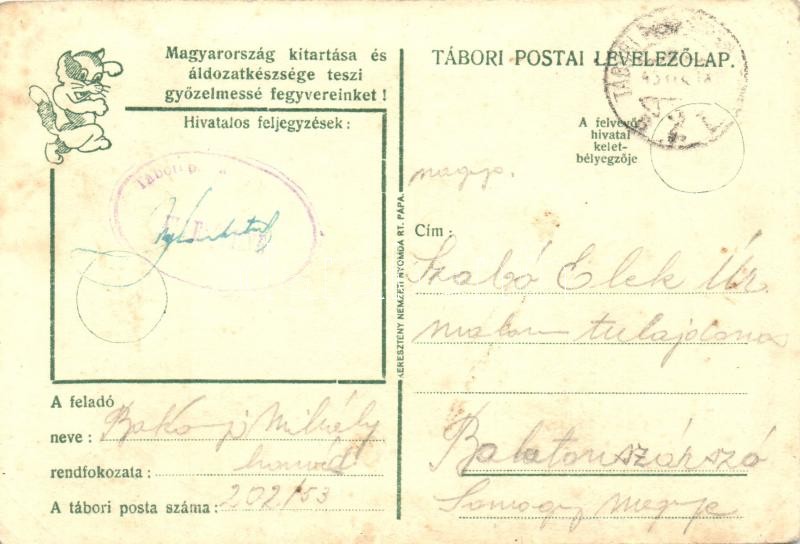 Magyarország kitartása és
áldozatkészsége teszi
győzelmessé fegyvereinket !
Hivatalos feljegyzések :
Tábori p
A feladó
neve : Bakonyi Mihály
rendfokozata : honvéd
A tábori posta száma : 202/53
KERESZTÉNY NEMZETI NYOMDA RT. PÁPA.
TÁBORI POSTAI LEVELEZŐLAP.
TÁBORI
A felvevő
hivatal
kelet-
bélyegzője
Cím :
Szabó Elek Úr.
malom tulajdonos
Balatonszárszó
Somogy megye